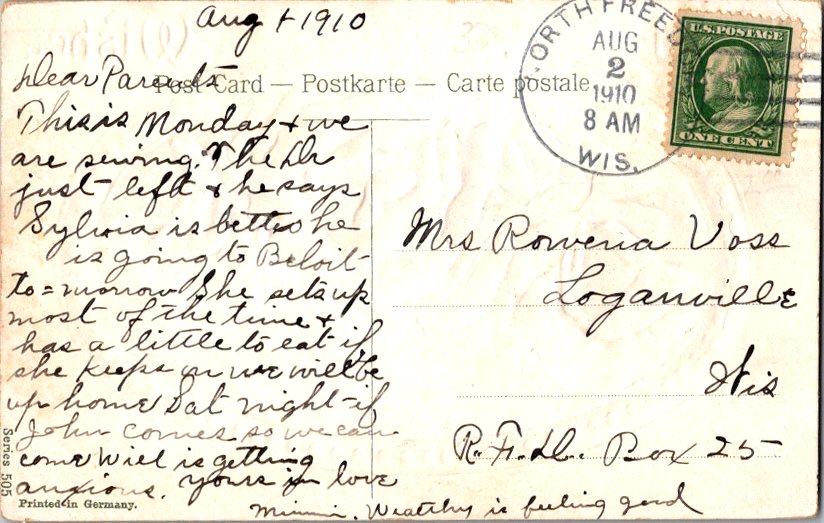 Aug 1 1910
NORTH FREEDOM
AUG
2
1910
8 AM
WIS.
U.S. POSTAGE
ONE CENT
Post Card — Postkarte — Carte postale
Dear Parents
This is Monday + we
are sewing. The Dr
just left + he says
Sylvia is better he
is going to Beloit
to=morrow She sets up
most of the time +
has a little to eat if
she keeps on we will be
up home Sat night if
John comes so we can
come Will is getting
anxious. Yours in love
Minnie. is feeling good
Mrs Rowena Voss
Loganville
Wis
R.F.D. Box 25
Series 505
Printed in Germany.